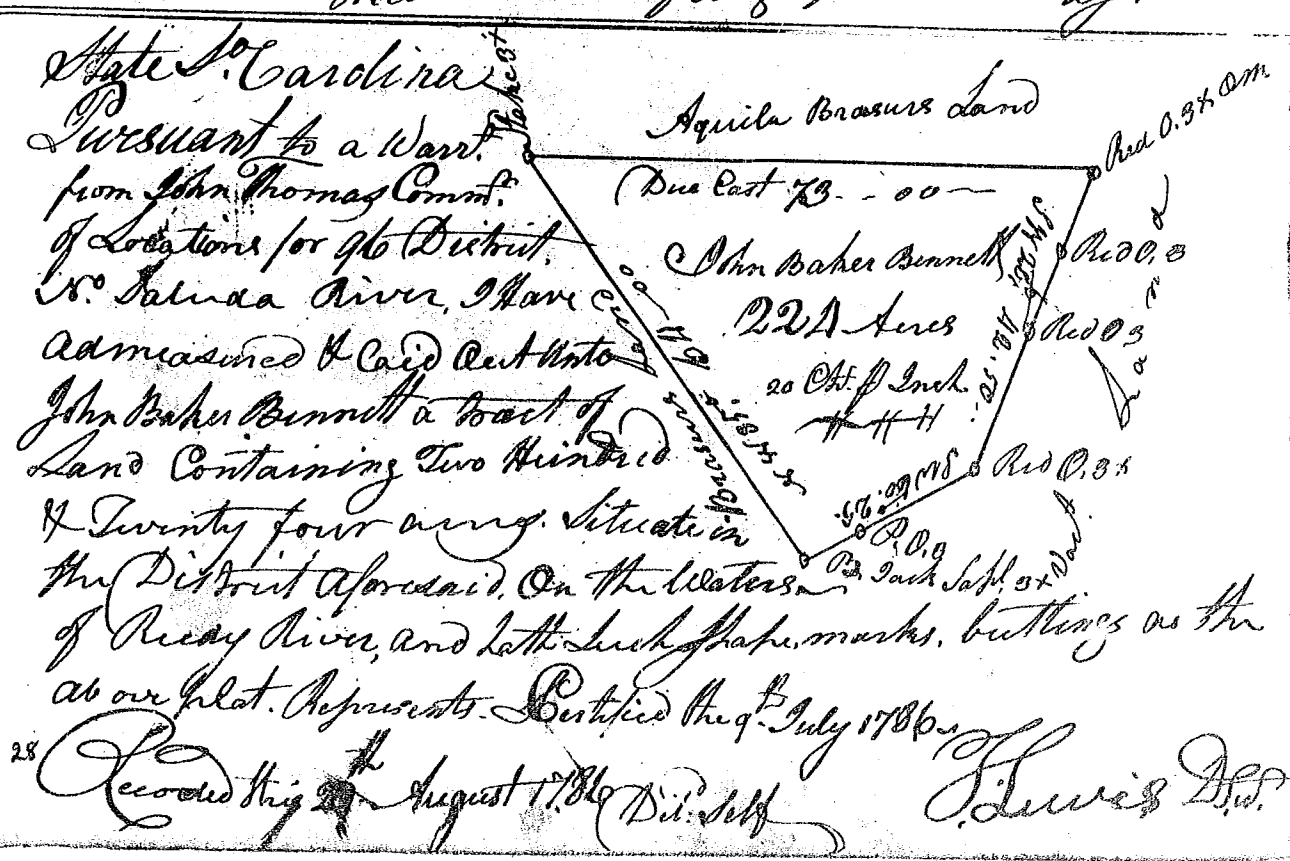 State So. Carolina
Pursuant to a Warrt.
from John Thomas Commr.
of Locations for 96 District,
No. Saluda River, I Have
admeasured & Laid Out Unto
John Baker Bennett a tract of
Land Containing Two Hundred
& Twenty four acres. Situate in
the District aforesaid. On the Waters
of Reedy River, and hath Such Shape, marks, buttings as the
above plat. Represents. Certified the 9th July 1786
28
Recorded this August 1786
Dil. Self
Lewis D.S.
Stake 3x
Aquila Brasurs Land
Due East 73 - - 00 —
Red O. 3x Om
John Baker Bennett
224 Acres
20 Chs. P Inch.
Red O. 3
Red O 3
Red O. 3x
Land
42.50
P. O. 9
Jack Sapl. 3x
Vact
Brasurs